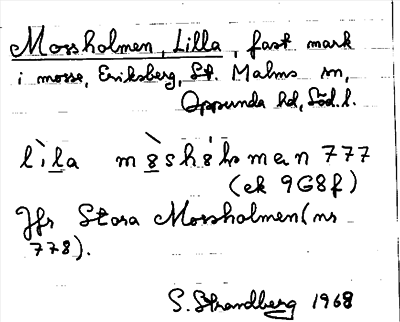 Mossholmen, Lilla, fast mark
i mosse, Eriksberg, St. Malms sn,
Oppunda hd, Söd. l.
lìla mòshòlman 777
(ek 9G8f)
Jfr Stora Mossholmen (nr
778).
S. Strandberg 1968